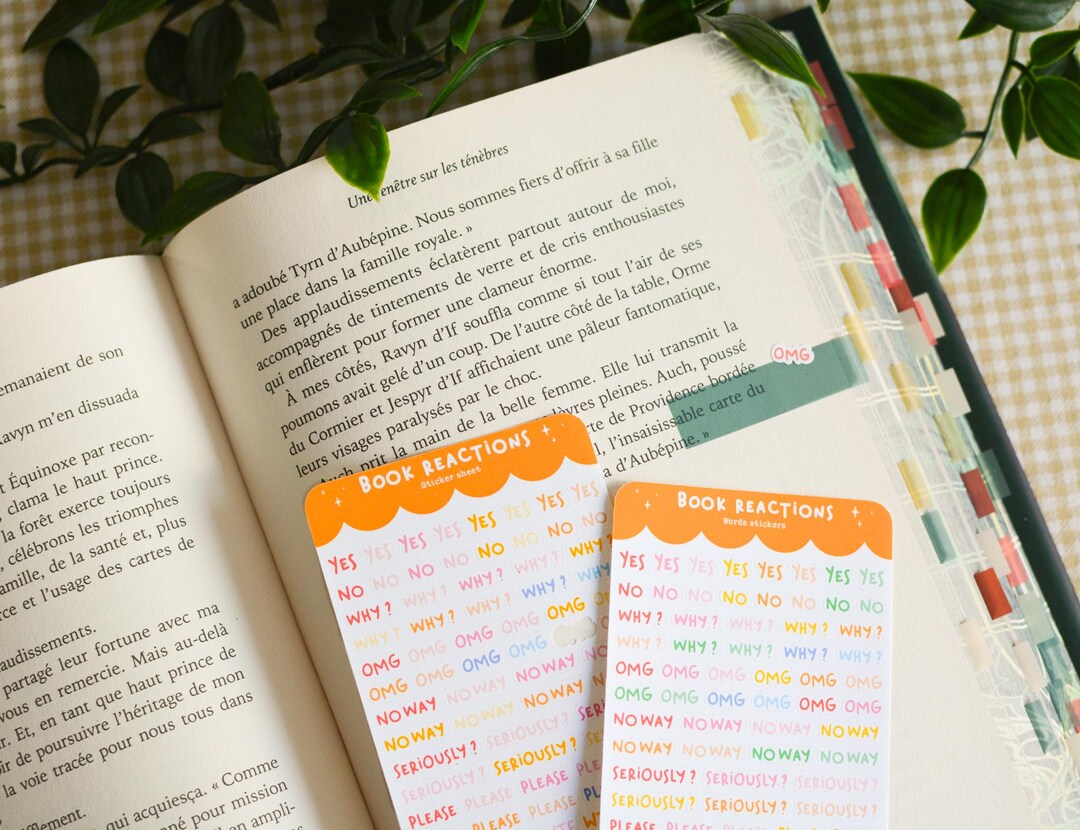 emanaient de son
avyn m'en dissuada
t Équinoxe par recon-
, clama le haut prince.
la forêt exerce toujours
, célébrons les triomphes
amille, de la santé et, plus
rce et l'usage des cartes de
audissements.
partagé leur fortune avec ma
vous en remercie. Mais au-delà
r. Et, en tant que haut prince de
oir de poursuivre l'héritage de mon
la voie tracée pour nous tous dans
fflement.
qui acquiesça. « Comme
onné pour mission
en ampli-
Une fenêtre sur les ténèbres
a adoubé Tyrn d'Aubépine. Nous sommes fiers d'offrir à sa fille
une place dans la famille royale. »
Des applaudissements éclatèrent partout autour de moi,
accompagnés de tintements de verre et de cris enthousiastes
qui enflèrent pour former une clameur énorme.
À mes côtés, Ravyn d'If souffla comme si tout l'air de ses
poumons avait gelé d'un coup. De l'autre côté de la table, Orme
du Cormier et Jespyr d'If affichaient une pâleur fantomatique,
leurs visages paralysés par le choc.
Auch prit la main de la belle femme. Elle lui transmit la
lèvres pleines. Auch, poussé
rte de Providence bordée
l, l'insaisissable carte du
a d'Aubépine. »
OMG
BOOK REACTIONS
Sticker sheet
YES YES YES YES YES YES YES YES
NO NO NO NO NO NO NO NO
WHY? WHY? WHY? WHY? WHY?
WHY? WHY? WHY? WHY? WHY?
OMG OMG OMG OMG OMG
OMG OMG OMG OMG
NO WAY NO WAY NO WAY NO
NO WAY NO WAY NO WAY
SERIOUSLY? SERIOUSLY? SER
SERIOUSLY? SERIOUSLY?
PLEASE PLEASE PLEASE
PLEASE PLEASE
BOOK REACTIONS
Words stickers
YES YES YES YES YES YES YES YES
NO NO NO NO NO NO NO NO
WHY? WHY? WHY? WHY? WHY?
WHY? WHY? WHY? WHY? WHY?
OMG OMG OMG OMG OMG OMG
OMG OMG OMG OMG OMG OMG
NO WAY NO WAY NO WAY NO WAY
NO WAY NO WAY NO WAY NO WAY
SERIOUSLY? SERIOUSLY? SERIOUSLY?
SERIOUSLY? SERIOUSLY? SERIOUSLY?
PLEASE PLEASE PLEASE PLEASE PLEASE